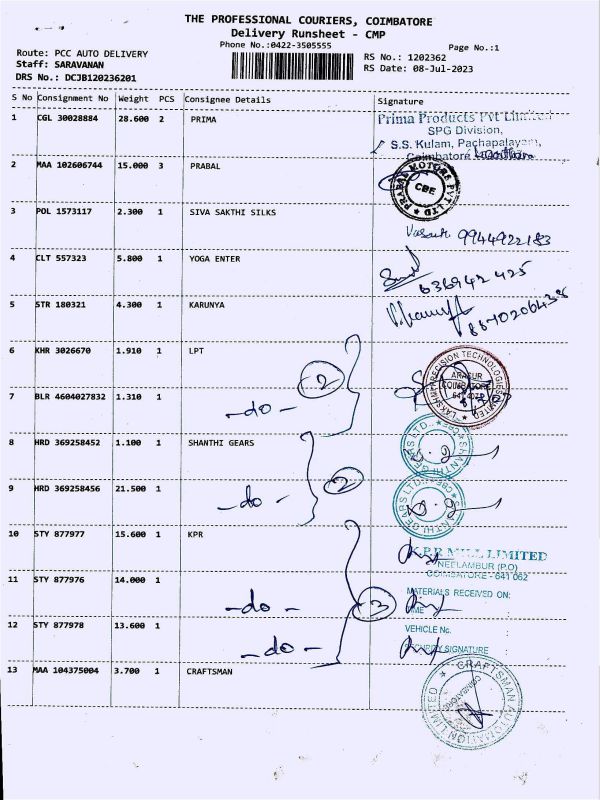 THE PROFESSIONAL COURIERS, COIMBATORE
Delivery Runsheet - CMP
Phone No.:0422-3505555
Page No.:1
Route: PCC AUTO DELIVERY
Staff: SARAVANAN
DRS No.: DCJB120236201
RS No.: 1202362
RS Date: 08-Jul-2023
S No Consignment No Weight PCS Consignee Details Signature
1 CGL 30028884 28.600 2 PRIMA
Prima Products Pvt Limited
SPG Division,
S.S. Kulam, Pachapalayam,
Coimbatore
2 MAA 102606744 15.000 3 PRABAL
PRABAL MOTORS PVT LTD
CBE
3 POL 1573117 2.300 1 SIVA SAKTHI SILKS
9944922183
4 CLT 557323 5.800 1 YOGA ENTER
636942 425
5 STR 180321 4.300 1 KARUNYA
6 KHR 3026670 1.910 1 LPT
2
LAKSHMI PRECISION TECHNOLOGIES LIMITED
ARASUR
COIMBATORE
641 407
7 BLR 4604027832 1.310 1
-do-
8 HRD 369258452 1.100 1 SHANTHI GEARS
SHANTHI GEARS LTD., CBE
2
9 HRD 369258456 21.500 1
-do-
SHANTHI GEARS LTD., CBE
10 STY 877977 15.600 1 KPR
K.P.R MILL LIMITED
NEELAMBUR (P.O)
COIMBATORE - 641 062
11 STY 877976 14.000 1
-do-
3
MATERIALS RECEIVED ON:
TIME :
12 STY 877978 13.600 1
-do-
VEHICLE No. :
SECURITY SIGNATURE :
13 MAA 104375004 3.700 1 CRAFTSMAN
CRAFTSMAN AUTOMATION LIMITED